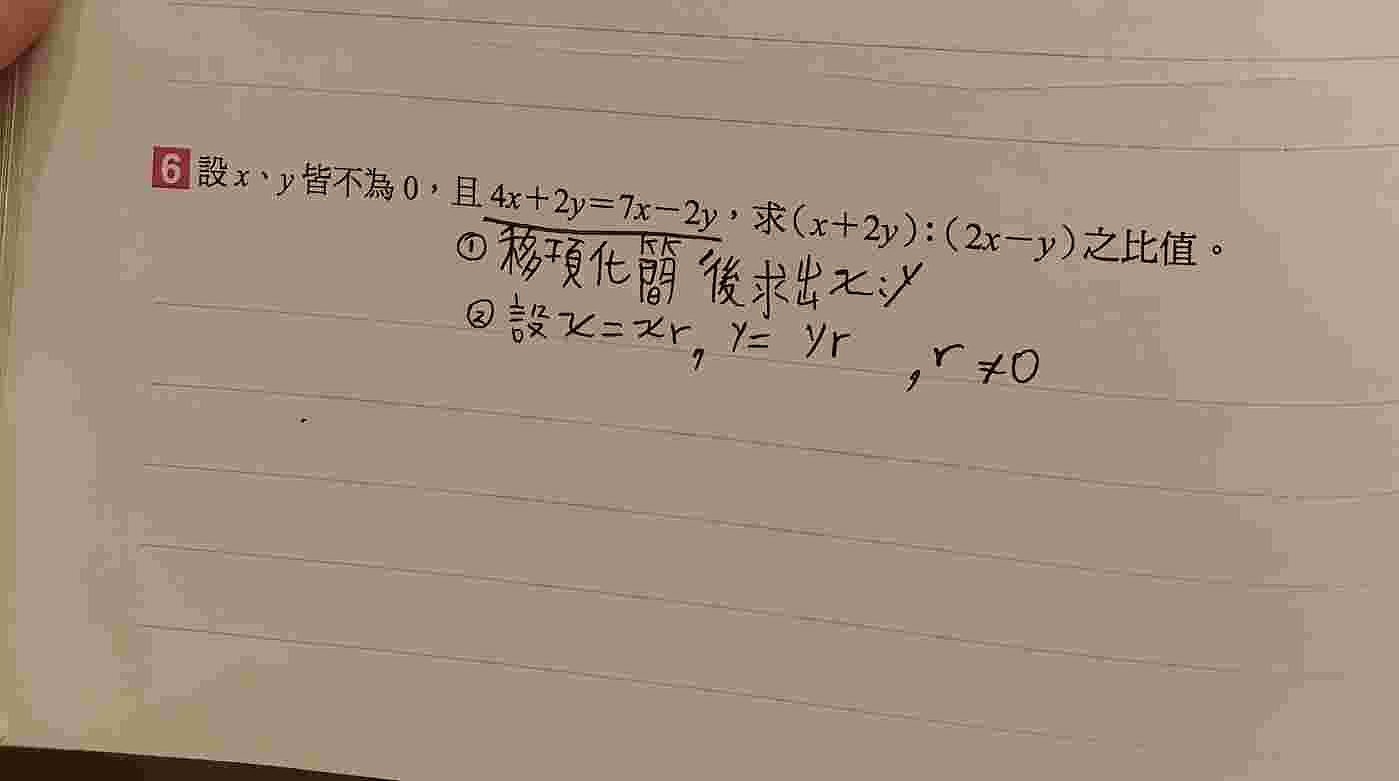 6 設x、y皆不為0，且4x+2y=7x-2y，求(x+2y):(2x-y)之比值。
① 移項化簡後求出x:y
② 設x=xr, y= yr , r≠0